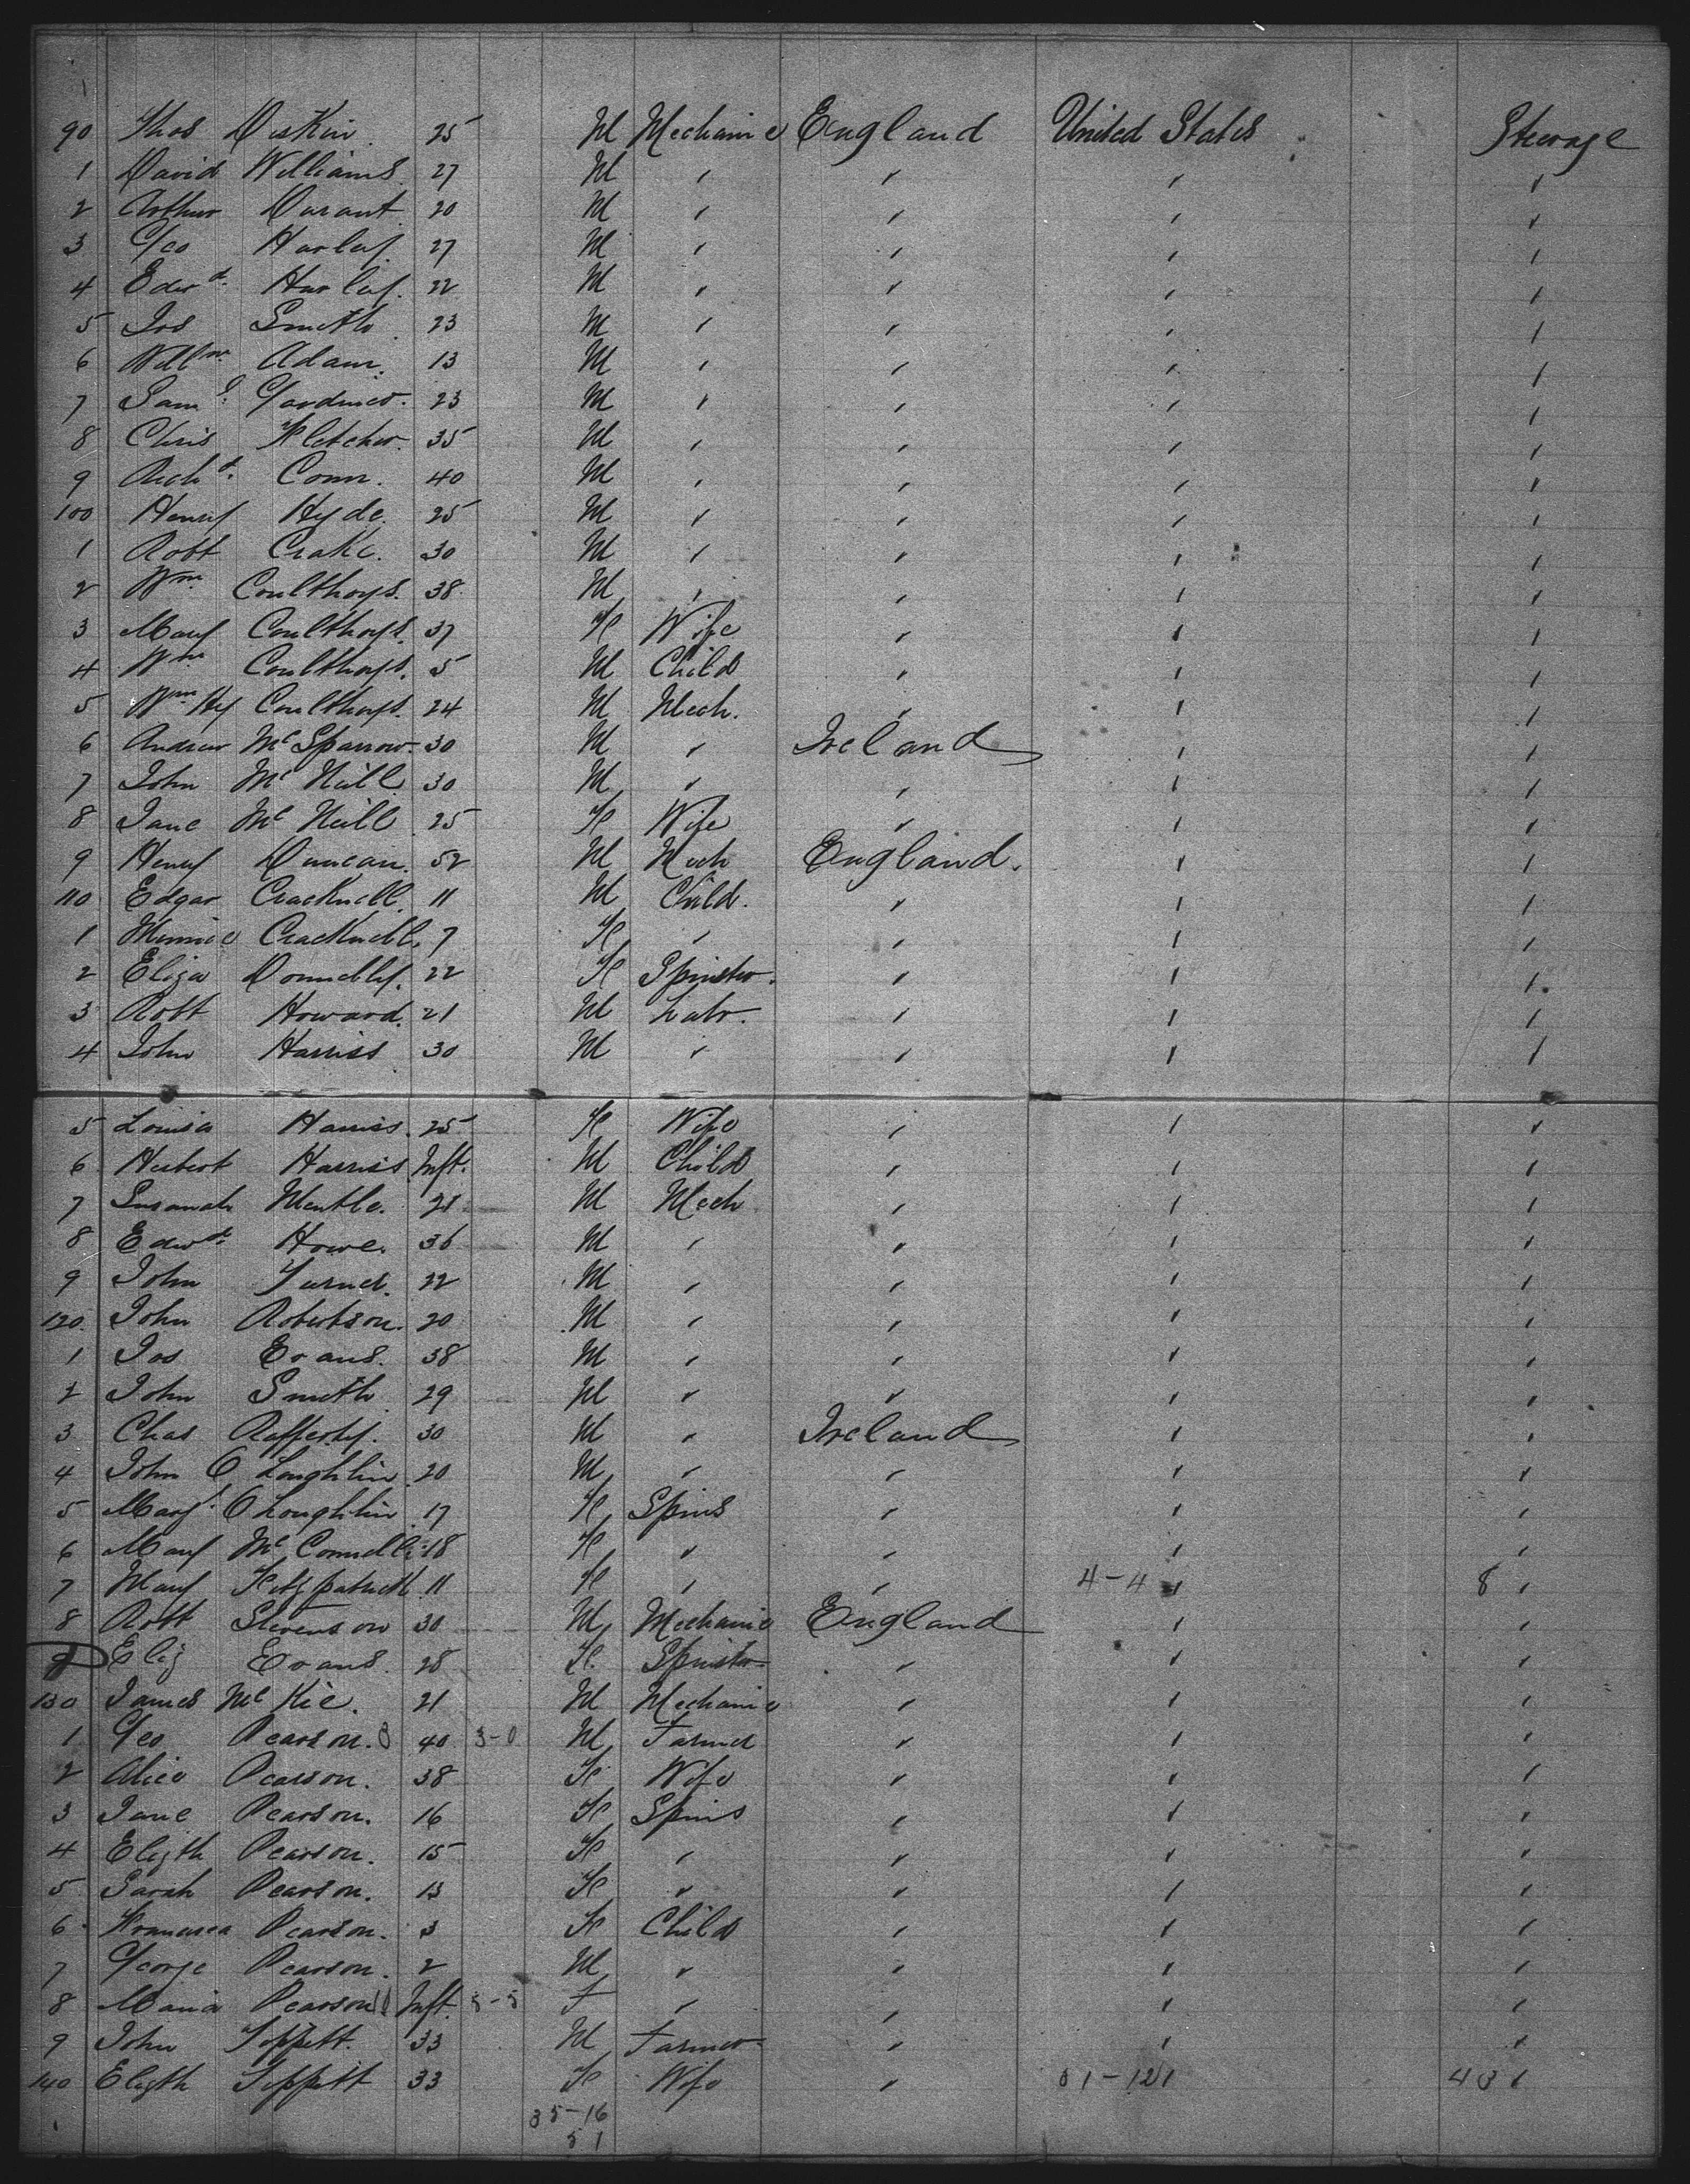 90 Thos Diskin. 25 M Mechanic England United States Steerage
1 David Williams. 27 M " " " "
2 Arthur Durant. 20 M " " " "
3 Geo Hurley. 27 M " " " "
4 Edwd. Hurley. 22 M " " " "
5 Jos Smith. 23 M " " " "
6 Willm. Adam. 13 M " " " "
7 Saml. Gardner. 23 M " " " "
8 Chris Fletcher. 35 M " " " "
9 Richd. Conn. 40 M " " " "
100 Henry Hyde. 25 M " " " "
1 Robt Crake. 30 M " " " "
2 Wm. Coulthays. 38 M " " " "
3 Mary Coulthays. 37 F Wife " " "
4 Wm Coulthays. 5 M Child " " "
5 Wm Hy Coulthays. 24 M Mech. " " "
6 Andrew McSparrow. 30 M " Ireland " "
7 John McNeill. 30 M " " " "
8 Jane McNeill. 25 F Wife " " "
9 Henry Duncan. 52 M Mech England. " "
110 Edgar Cracknell. 11 M Child. " " "
1 Minnie Cracknell. 7 F " " " "
2 Eliza Donnelly. 22 F Spinster. " " "
3 Robt Howard. 21 M Labr. " " "
4 John Harriss 30 M " " " "
5 Louisa Harriss. 25 F Wife " " "
6 Herbert Harriss Inft. M Child " " "
7 Susannah Mentle. 21 M Mech " " "
8 Edwd. Howe. 36 M " " " "
9 John Turner. 22 M " " " "
120. John Robertson. 20 M " " " "
1 Jos Evans. 38 M " " " "
2 John Smith 29 M " " " "
3 Chas Rafferty. 30 M " Ireland " "
4 John O Loughlin 20 M " " " "
5 Mary O'Loughlin 17 F Spins " " "
6 Mary McConnell. 18 F " " " "
7 Mary Fitzpatrick 11 F " " 4-4 " 8 "
8 Robt Stevenson 30 M Mechanic England " "
9 Eliz Evans. 28 F. Spinster " " "
130 James McKie. 21 M Mechanic " " "
1 Geo Pearson. 40 3-0 M Farmer " " "
2 Alice Pearson. 38 F Wife " " "
3 Jane Pearson. 16 F Spins " " "
4 Elizth Pearson. 15 F " " " "
5 Sarah Pearson. 13 F " " " "
6 Francisca Pearson. 3 F Child " " "
7 George Pearson. 2 M " " " "
8 Maria Pearson Inft. 5-5 F " " " "
9 John Tippett. 33 M Farmer " " "
140 Elizth Tippett 33 F Wife " 31-12 " 43 "
35-16
51